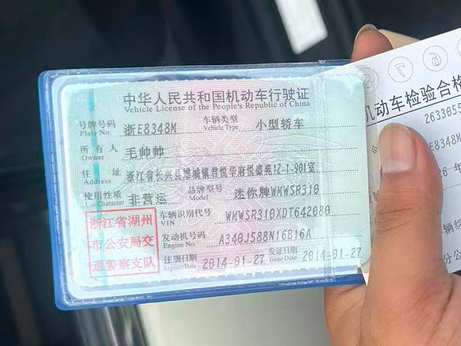 中华人民共和国机动车行驶证
Vehicle License of the People's Republic of China
号牌号码 浙E8348M 车辆类型 小型轿车
Plate No. Vehicle Type
所有人 毛帅帅
Owner
住址 浙江省长兴县雉城镇君悦华府悦盛苑12-1-901室
Address
使用性质 非营运 品牌型号 迷你牌WMWSR310
Use Character Model
浙江省湖州
市公安局交
通警察支队
车辆识别代号 WMWSR310XDT642080
VIN
发动机号码 A340J588N16B16A
Engine No.
注册日期 2014-01-27 发证日期 2014-01-27
Register Date Issue Date
⑤ ⑥ ⑦
机动车检验合格
263305
E8348M